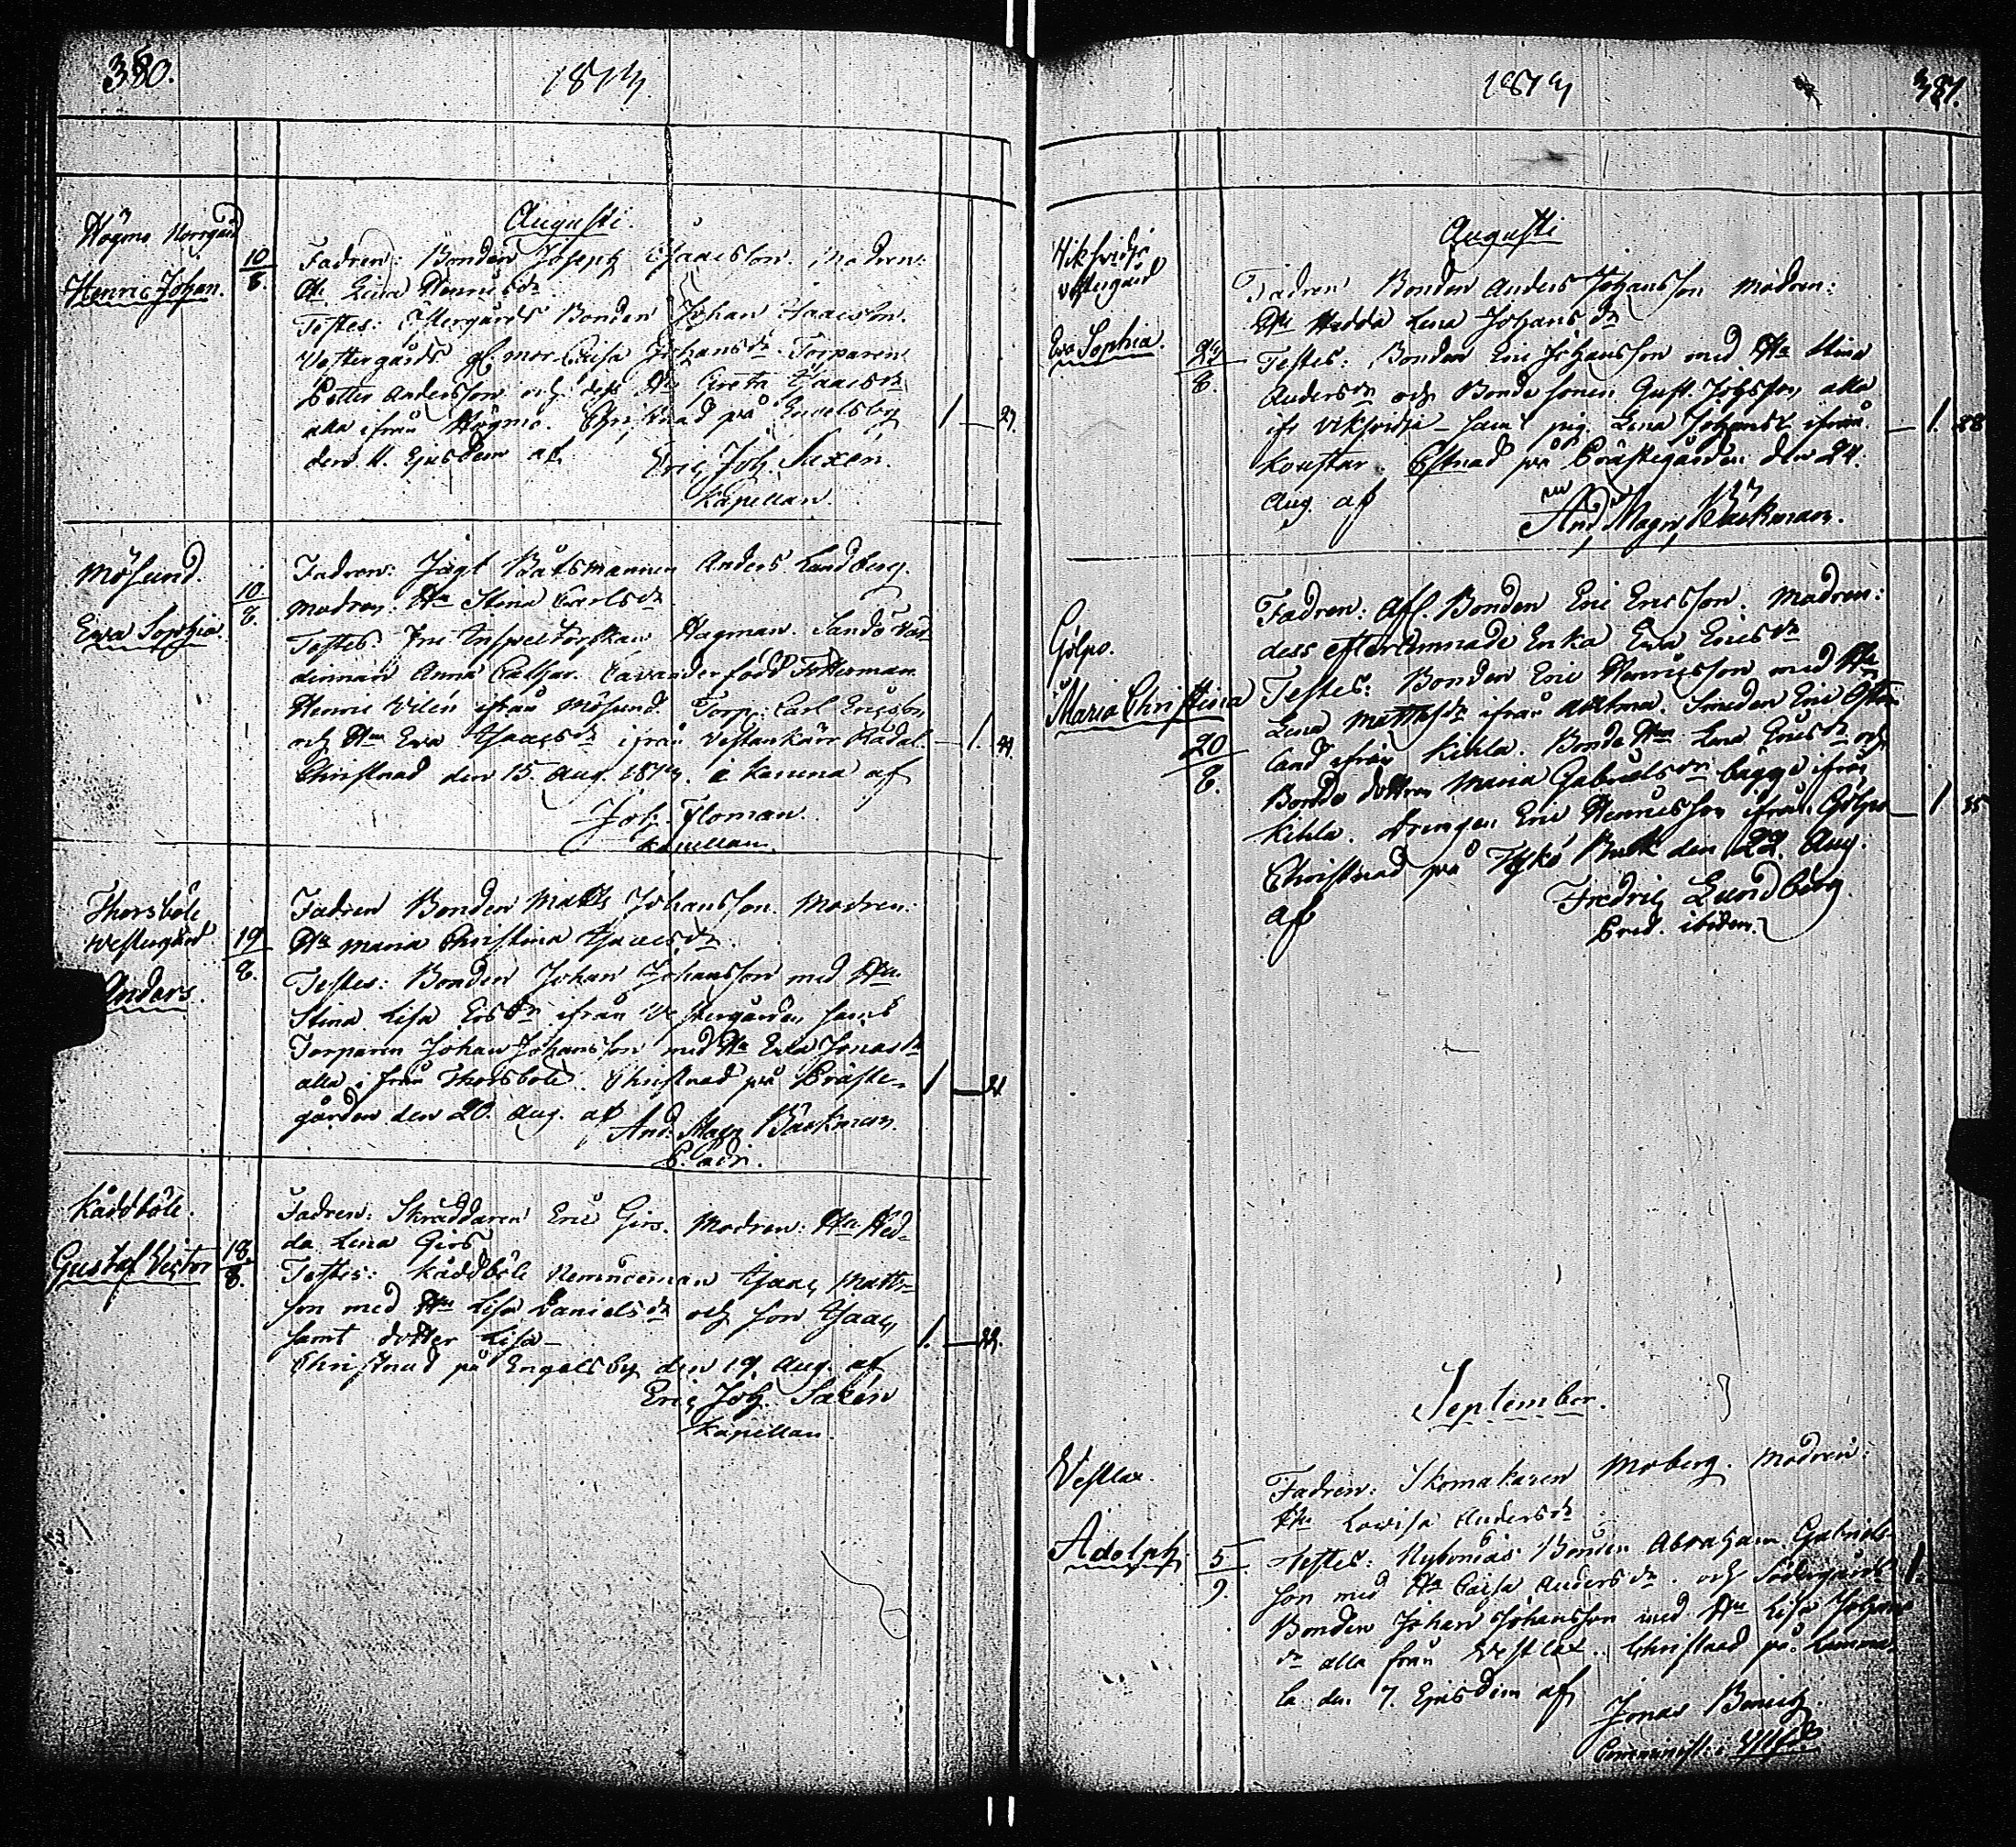 380.
1817
Augusti.
Högmo Norrgård
Henric Johan.
10
8.
Fadren: Bonden Joseph Isaacsson. Modren:
Hu Lena Henricsdr
Testes: Östergårds Bonden Johan Isaacsson.
Vestergårds gl. mor Caisa Johansdr. Torparen
Petter Andersson och dess Hu Greta Isaacsdr
alla ifrån Högmo. Christnad på Engelsby
den 11. Ejusdem af
1 27.
Eric Joh. Saxén.
Kapellan.
Mösund.
Ewa Sophia.
10
8.
Fadren: Jagt Båtsmannen Anders Lundberg.
Modren. Hu Stina Carlsdr
Testes: Fru Inspectorskan Hagman. Sandö Vär-
dinnan Anna Cathar. Cavander född Forsman
Henric Vilén ifrån Mösund. Torp. Carl Ericsson
och Hu Eva Isaacsdr ifrån Vestankärr Rådal.
Christnad den 15. Aug. 1817. i Kamma af
1.
Joh. Floman.
Kapellan.
Thorsböle
Westergård
Anders.
19
8.
Fadren Bonden Matts Johansson. Modren:
Hu Maria Christina Isaacsdr
Testes: Bonden Johan Johansson med Hu
Stina Lisa Ersdr ifrån Vestergården samt
Torparen Johan Johansson med Hu Eva Jonasdr
alla ifrån Thorsböle. Christnad på Präste-
gården den 20. Aug. af
1
And. Magn. Bäckman
P. adj.
Kåddböle.
Gustaf Victor
18
8.
Fadren: Skräddaren Eric Girs. Modren: Hu Hed-
da Lena Girs
Testes: Kåddböle Nemndeman Isaac Matts-
son med Hu Lisa Danielsdr och son Isaac,
samt dotter Lisa –
Christnad på Engelsby den 19 Aug. af
1.
Eric Joh. Saxén
Kapellan
381.
1817
Augusti
Vikfridsö
Östergård
Eva Sophia.
24
8.
Fadren Bonden Anders Johansson Modren:
Hu Hedda Lena Johansdr
Testes: Bonden Eric Johansson med Hu Stina
Andersdr och Bonde sonen Gust. Johsson, alla
ifr Vikfridsö – samt pig. Lena Johansdr ifrån
Christnad på Prästegården den 24.
Aug. af
1. 28
And. Magn. Bäckman.
Gölpo.
Maria Christina
20
8.
Fadren: Afl. Bonden Eric Ericsson. Modren:
dess efterlemnade Enka Ewa Ericsdr
Testes: Bonden Eric Henricsson med Hu
Lena Mattsdr ifrån Smeden Eric Öster-
lund ifrån Kihla. Bonde Hu Lena Ericsdr och
Bonde dottren Maria Gabrielsdr bägge ifrån
Kihla. Drengen Eric Henricsson ifrån Gölpo
Christnad på Tykö Bruk den 22. Aug.
af
1 35
Fredric Lundberg.
Pred. ibidem.
September.
Vestlax.
Adolph
5
9.
Fadren: Skomakaren Moberg. Modren:
Hu Lovisa Andersdr
Testes: Nybondas Bonden Abraham Gabriels-
son med Hu Caisa Andersdr. och Södergårds
Bonden Johan Johansson med Hu Lisa Johans-
dr alla från Vestlax. Christnad på Lamma-
la den 7. Ejusdem af
1.
Jonas